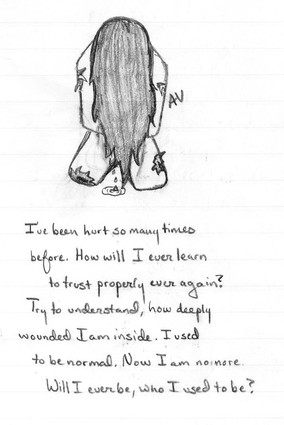 AV
I've been hurt so many times
before. How will I ever learn
to trust properly ever again?
Try to understand, how deeply
wounded I am inside. I used
to be normal. Now I am no more.
Will I ever be, who I used to be?